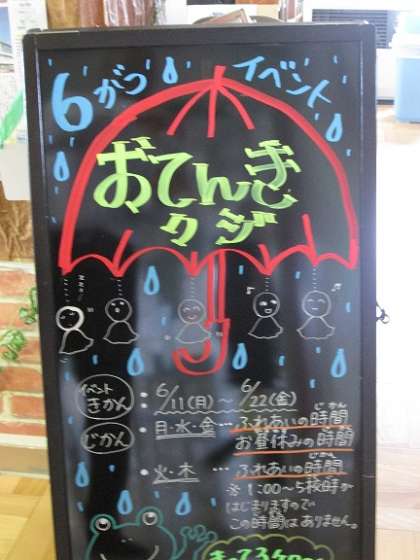 6がつ イベント
おてんき
クジ
zzz
イベント
きかん : 6/11(月)～6/22(金)
じかん : 日・水・金… ふれあいの時間
じかん
お昼休みの時間
火・木 … ふれあいの時間
じかん
※1:00～5校時が
はじまりますので
この時間はありません。